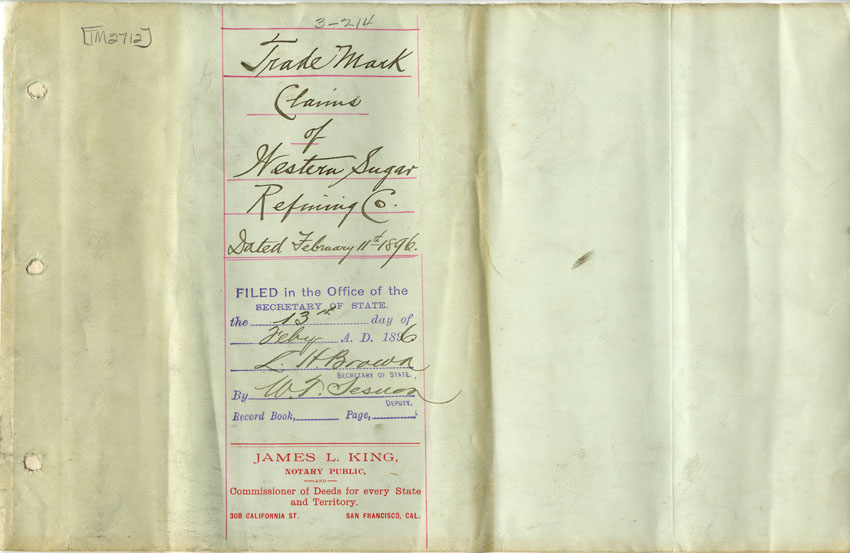 3-214
[TM2712]
Trade Mark
Claims
of
Western Sugar
Refining Co.
Dated February 11th 1896.
FILED in the Office of the
SECRETARY OF STATE.
the 13th day of
Feby A. D. 1896
L. H. Brown
SECRETARY OF STATE.
By W. T. Sesnon
DEPUTY.
Record Book, Page,
JAMES L. KING,
NOTARY PUBLIC,
AND
Commissioner of Deeds for every State
and Territory.
308 CALIFORNIA ST. SAN FRANCISCO, CAL.